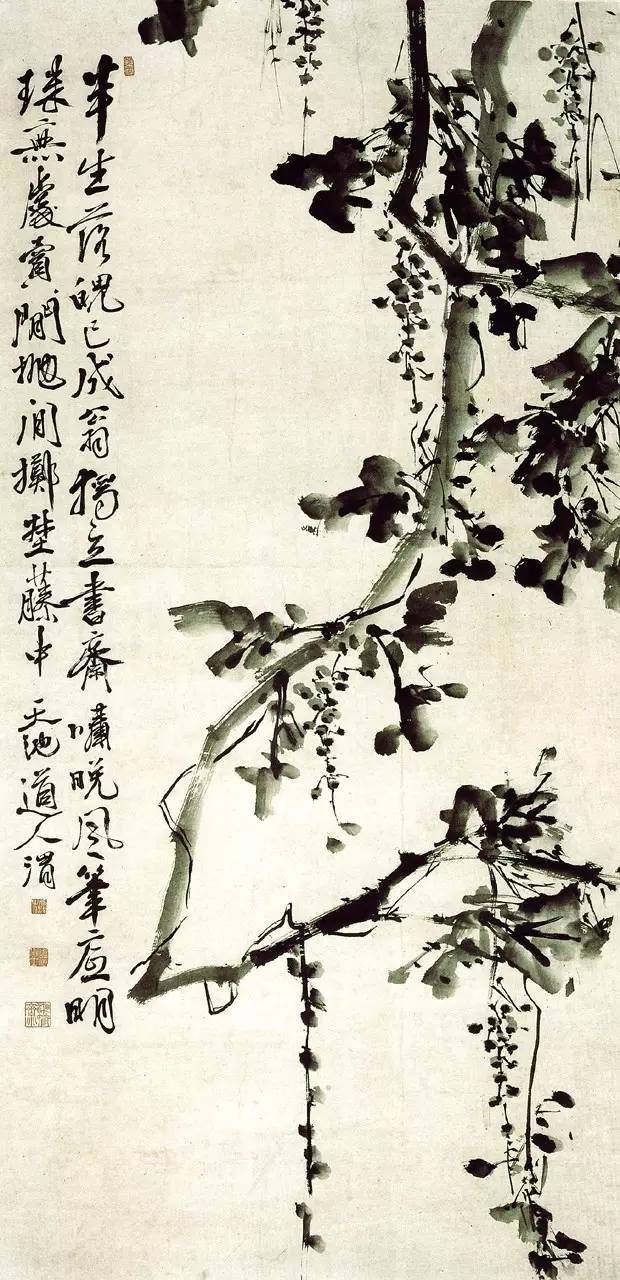 半生落魄已成翁獨立書齋嘯晚風筆底明
珠無處賣閒拋閒擲埜藤中天池道人渭